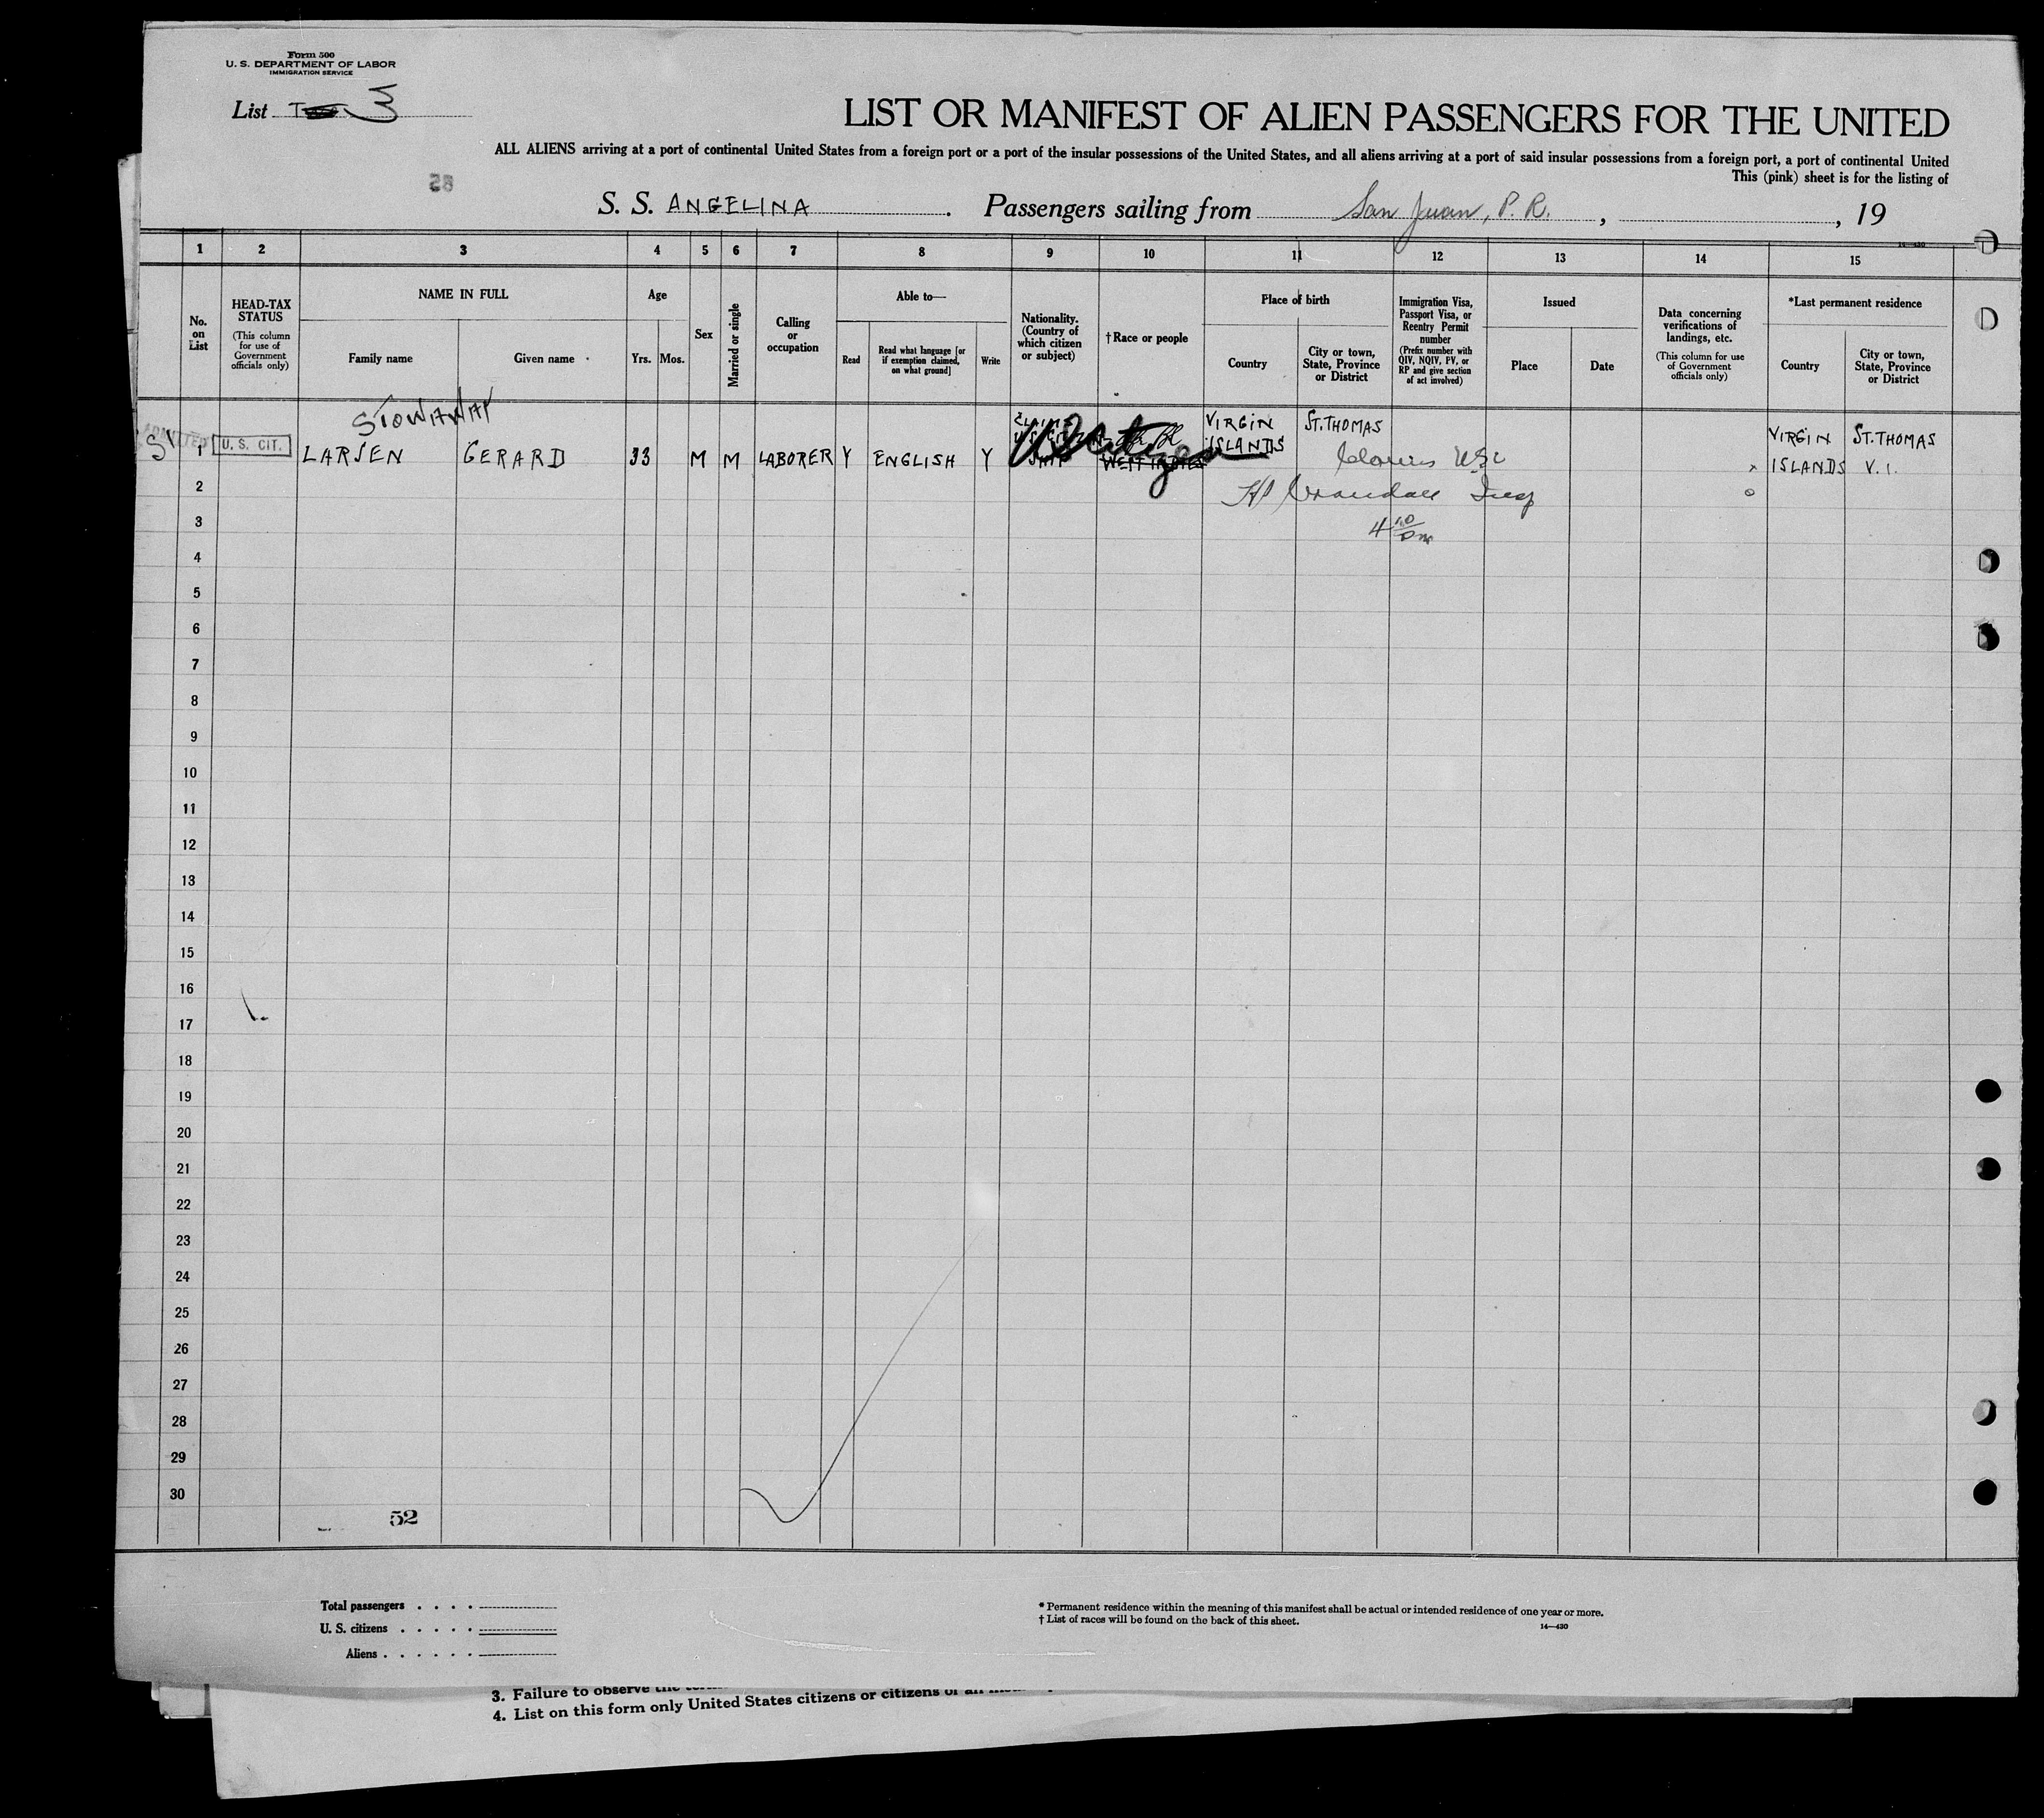 Form 500
U. S. DEPARTMENT OF LABOR
IMMIGRATION SERVICE
List 3
LIST OR MANIFEST OF ALIEN PASSENGERS FOR THE UNITED
ALL ALIENS arriving at a port of continental United States from a foreign port or a port of the insular possessions of the United States, and all aliens arriving at a port of said insular possessions from a foreign port, a port of continental United
This (pink) sheet is for the listing of
S. S. ANGELINA . Passengers sailing from San Juan, P. R. , , 19
14—430
1 2 3 4 5 6 7 8 9 10 11 12 13 14 15
No. on List
HEAD-TAX STATUS
(This column for use of Government officials only)
NAME IN FULL
Family name
Given name
Age
Yrs.
Mos.
Sex
Married or single
Calling or occupation
Able to—
Read
Read what language [or if exemption claimed, on what ground]
Write
Nationality. (Country of which citizen or subject)
†Race or people
Place of birth
Country
City or town, State, Province or District
Immigration Visa, Passport Visa, or Reentry Permit number
(Prefix number with QIV, NQIV, PV, or RP and give section of act involved)
Issued
Place
Date
Data concerning verifications of landings, etc.
(This column for use of Government officials only)
*Last permanent residence
Country
City or town, State, Province or District
STOWAWAY
ADMITTED
1 U. S. CIT. LARSEN GERARD 33 M M LABORER Y ENGLISH Y US Citizen WEST INDIES VIRGIN ISLANDS ST. THOMAS VIRGIN ISLANDS ST. THOMAS V. I.
Claims USC
2 Crandall Insp
3 4 10 pm
4
5
6
7
8
9
10
11
12
13
14
15
16
17
18
19
20
21
22
23
24
25
26
27
28
29
30
52
Total passengers . . . .
U. S. citizens . . . . .
Aliens . . . . . .
* Permanent residence within the meaning of this manifest shall be actual or intended residence of one year or more.
† List of races will be found on the back of this sheet.
14—430
3. Failure to observe the
4. List on this form only United States citizens or citizens of an